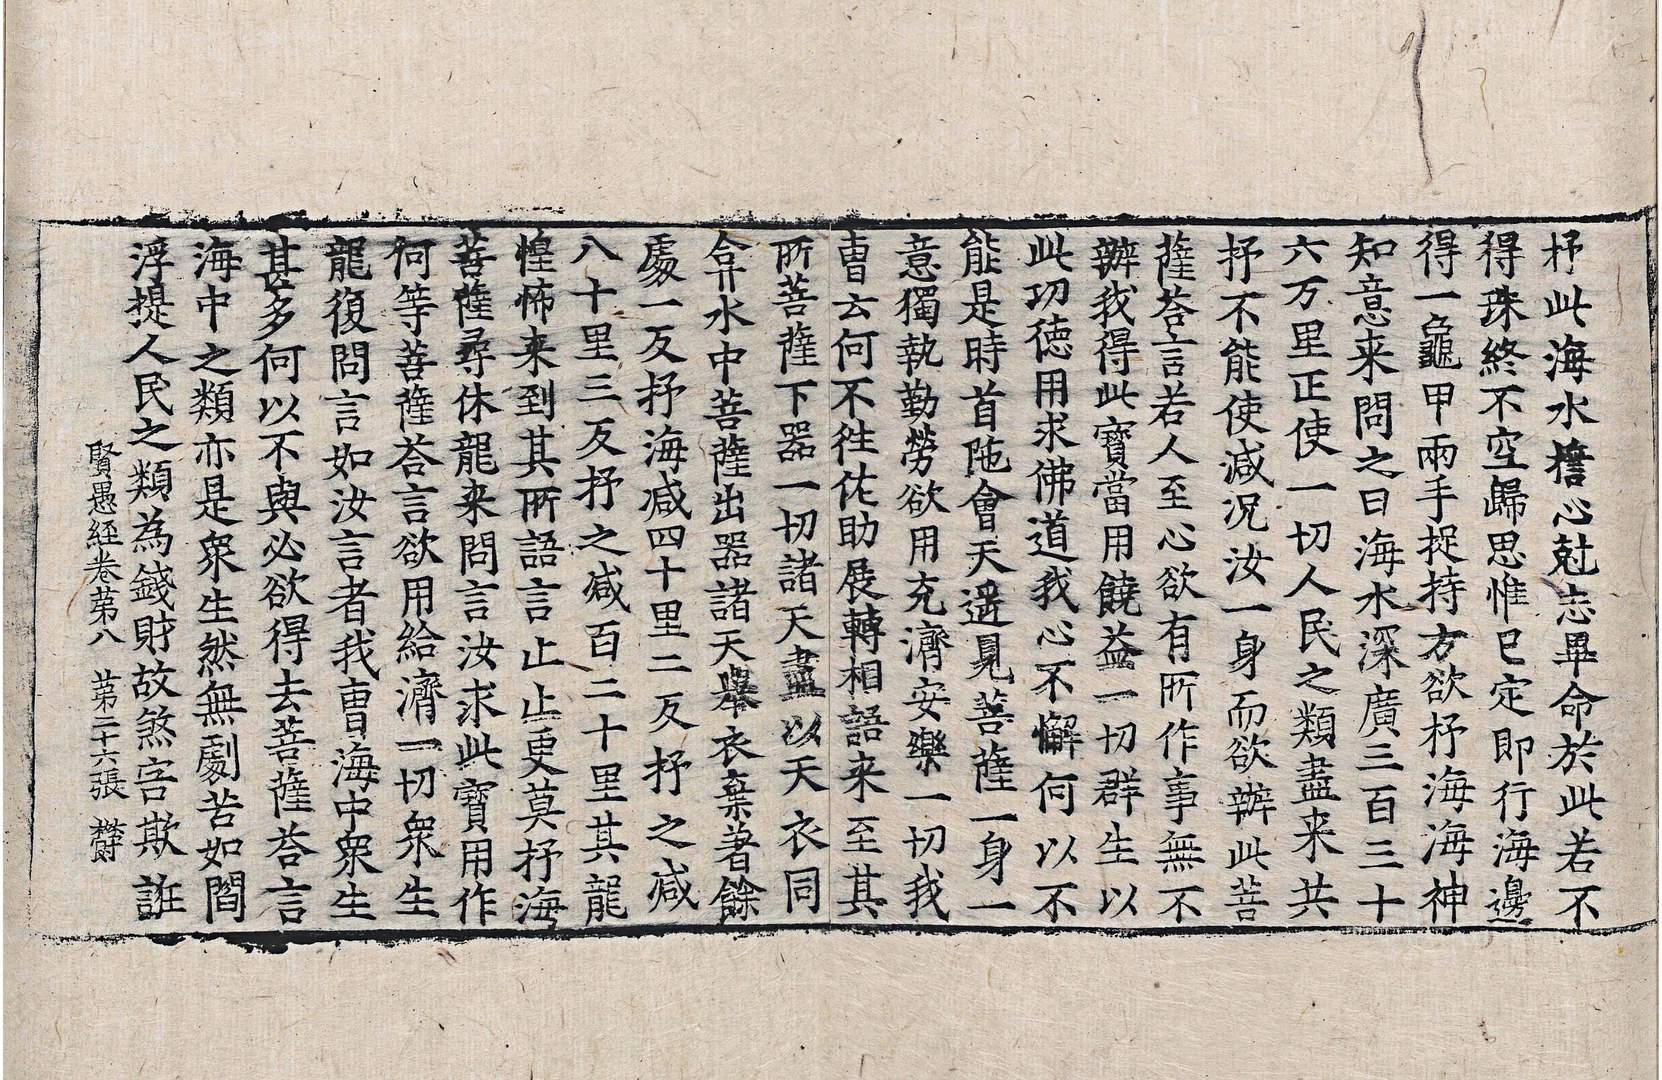 抒此海水擔心尅志畢命於此若不
得珠終不空歸思惟已定即行海邊
得一龜甲兩手捉持方欲抒海海神
知意来問之曰海水深廣三百三十
六万里正使一切人民之類盡来共
抒不能使減况汝一身而欲辦此菩
薩荅言若人至心欲有所作事無不
辦我得此寳當用饒益一切群生以
此功德用求佛道我心不懈何以不
能是時首陁會天遥見菩薩一身一
意獨執勤勞欲用充濟安樂一切我
曹云何不徃佐助展轉相語来至其
所菩薩下器一切諸天盡以天衣同
弇水中菩薩出器諸天舉衣棄著餘
處一反抒海减四十里二反抒之减
八十里三反抒之减百二十里其龍
惶怖来到其所語言止止更莫抒海
菩薩尋休龍来問言汝求此寳用作
何等菩薩荅言欲用給濟一切衆生
龍復問言如汝言者我曹海中衆生
甚多何以不與必欲得去菩薩荅言
海中之類亦是衆生然無劇苦如閻
浮提人民之類為錢財故煞害欺誑
賢愚經卷苐八　苐二十六張